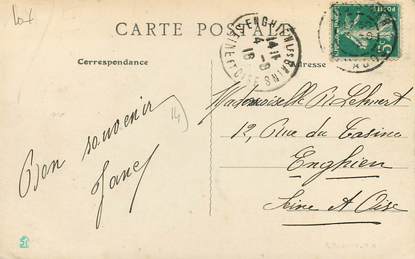 Lot
CARTE POSTALE
Correspondance
Adresse
ENGHIEN LES BAINS
SEINE ET OISE
14 11
4 - 9
16
5
Mademoiselle
12, Rue du Casino
Enghien
Seine & Oise
Bon souvenir
14